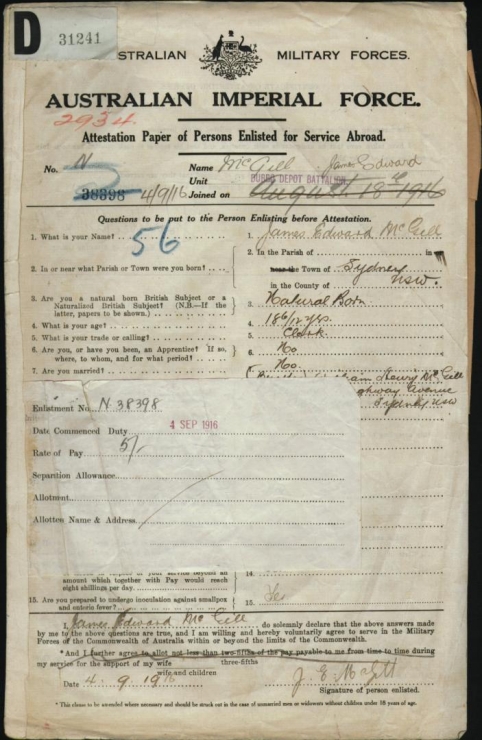 D 31241
AUSTRALIAN MILITARY FORCES.
AUSTRALIAN IMPERIAL FORCE.
2934.
Attestation Paper of Persons Enlisted for Service Abroad.
No. N 38398 4/9/16
Name McGill James Edward
Unit DUBBO DEPOT BATTALION
Joined on August 18th 1916
Questions to be put to the Person Enlisting before Attestation.
56
1. What is your Name? 1. James Edward McGill
2. In or near what Parish or Town were you born? 2. In the Parish of in
near the Town of Sydney
in the County of NSW.
3. Are you a natural born British Subject or a
Naturalized British Subject? (N.B.—If the
latter, papers to be shown.) 3. Natural Born
4. What is your age? 4. 18 6/12 yrs.
5. What is your trade or calling? 5. Clerk
6. Are you, or have you been, an Apprentice? If so,
where, to whom, and for what period? 6. No
7. Are you married? No.
Henry McGill
Avenue
Sydney NSW
Enlistment No. N 38398
Date Commenced Duty 4 SEP 1916
Rate of Pay 5/-
Separtion Allowance
Allotment
Allotten Name & Address
amount which together with Pay would reach
eight shillings per day. 14.
15. Are you prepared to undergo inoculation against smallpox
and enteric fever? 15. Yes
I, James Edward McGill do solemnly declare that the above answers made
by me to the above questions are true, and I am willing and hereby voluntarily agree to serve in the Military
Forces of the Commonwealth of Australia within or beyond the limits of the Commonwealth.
*And I further agree to allot not less than two-fifths of the pay payable to me from time to time during
three-fifths
my service for the support of my wife
wife and children
Date 4. 9. 1916
J. E. McGill
Signature of person enlisted.
* This clause to be amended where necessary and should be struck out in the case of unmarried men or widowers without children under 18 years of age.